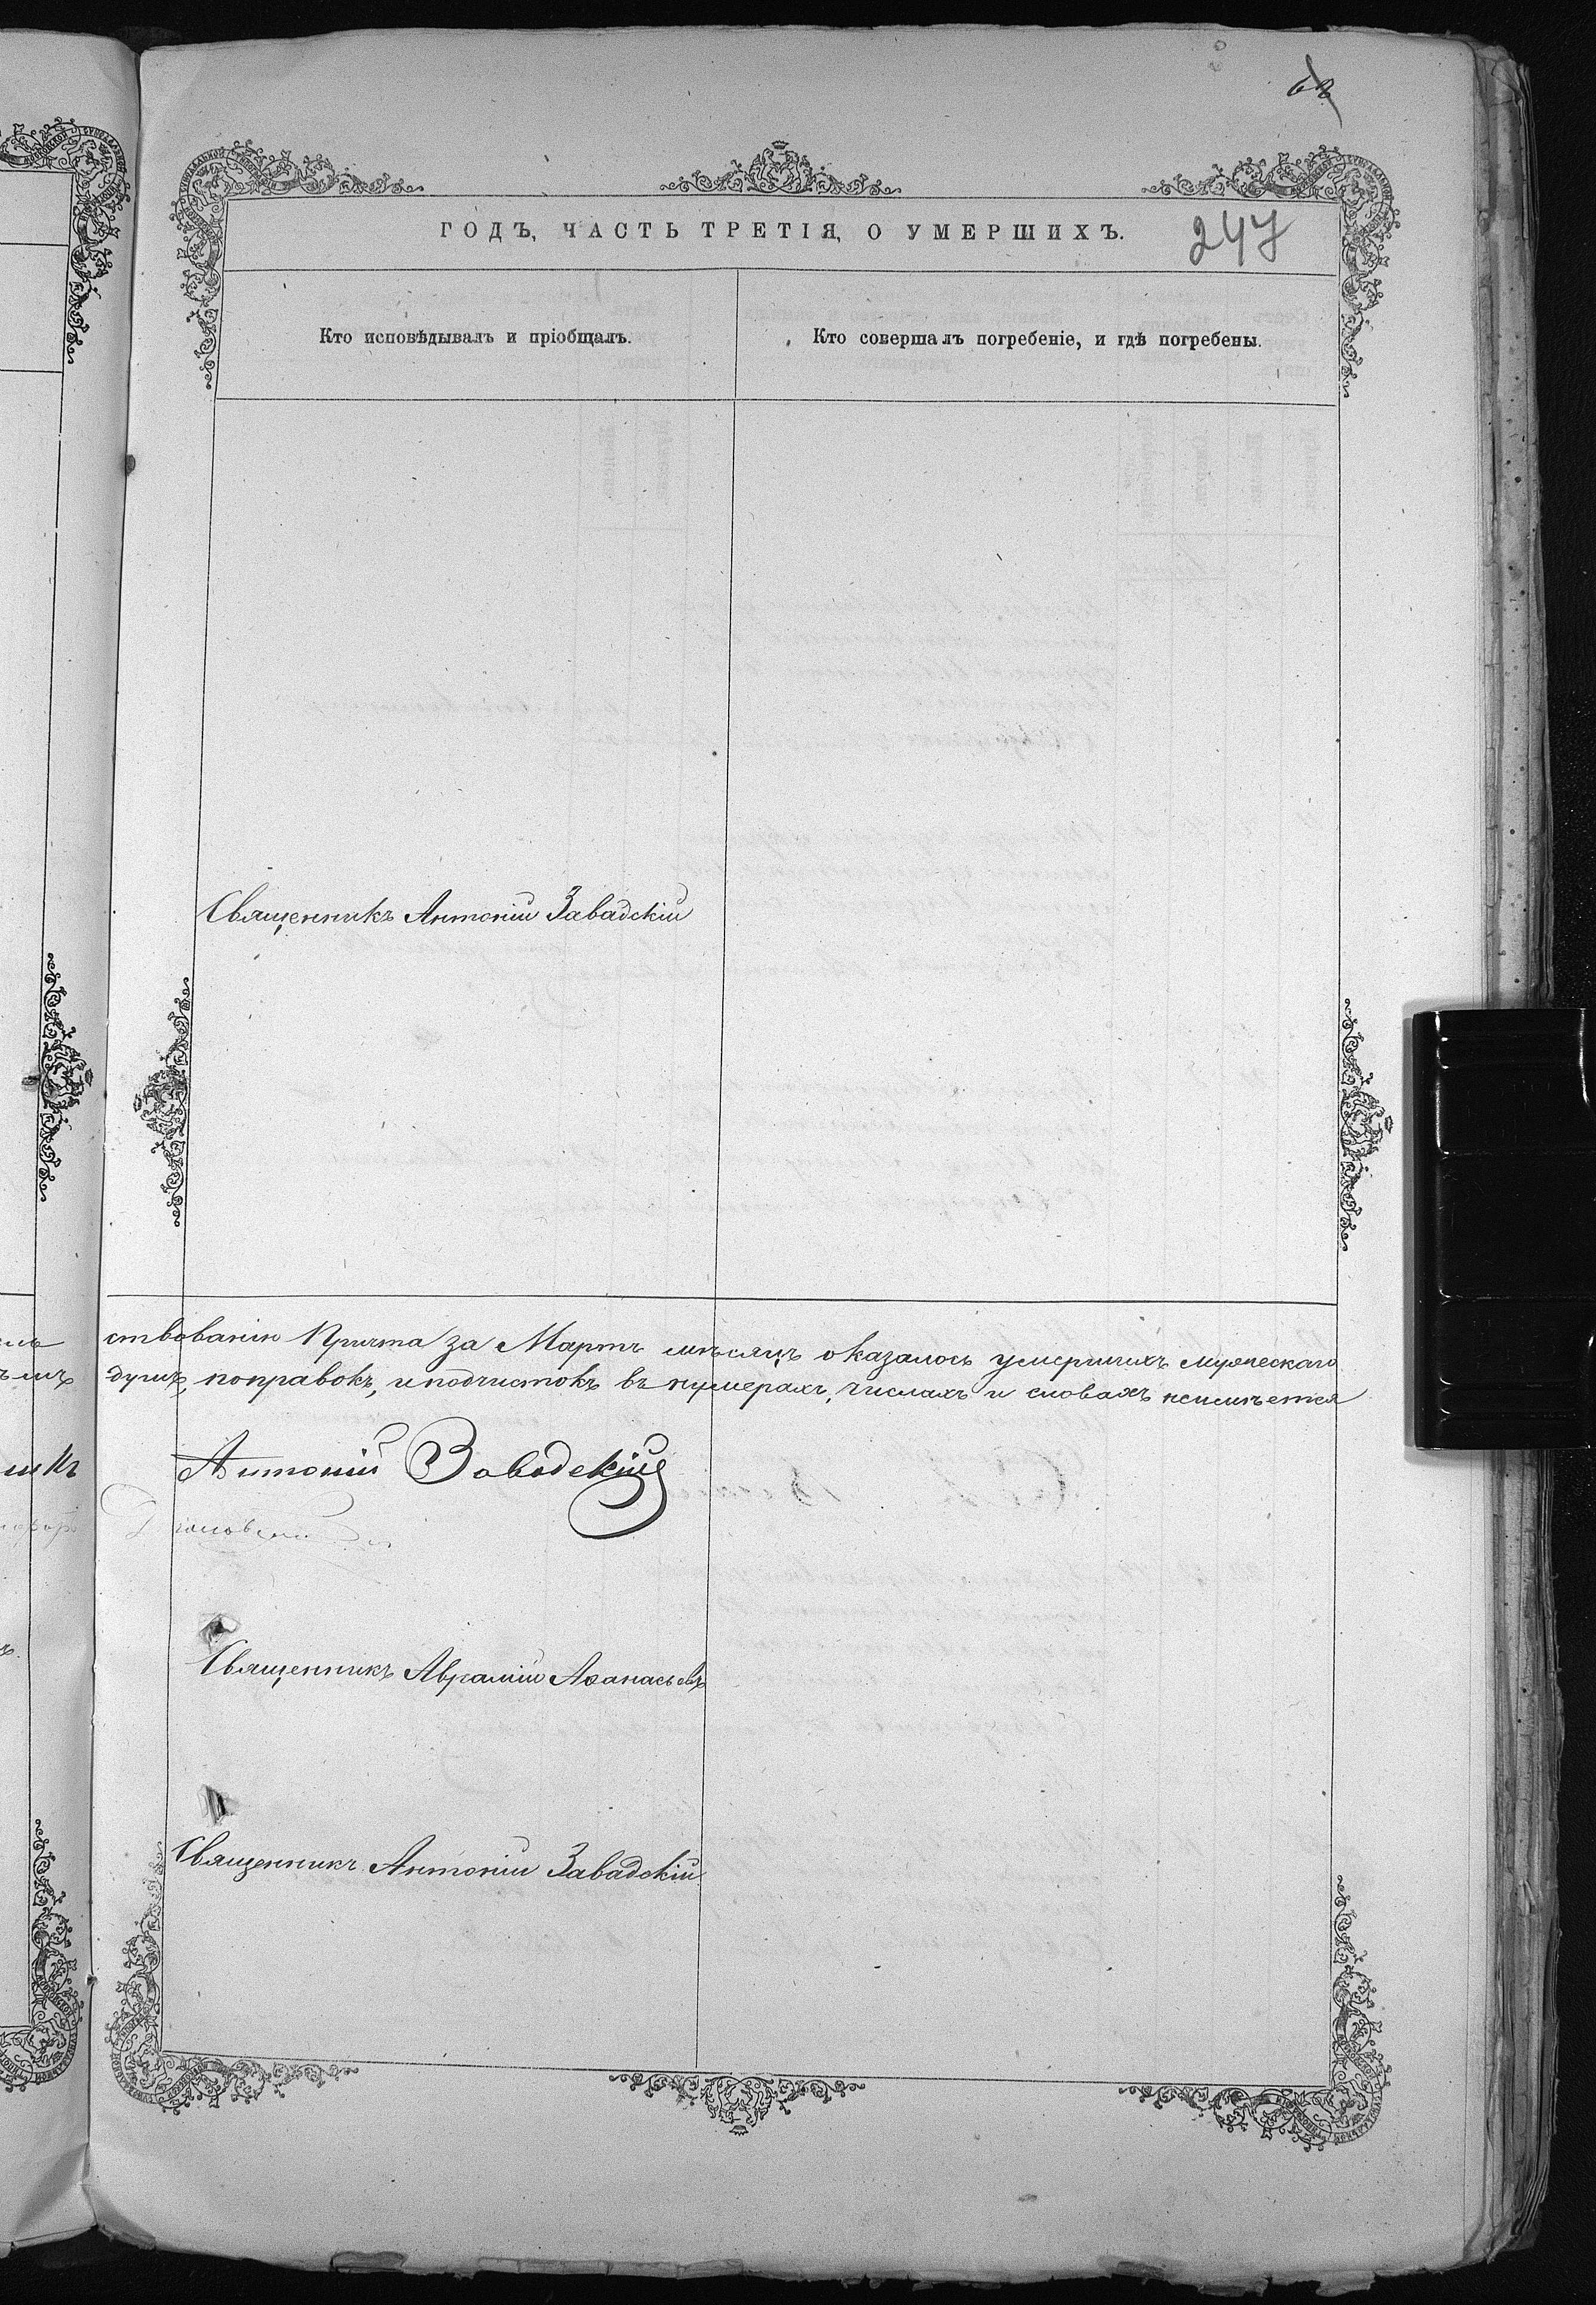 62
ГОДЪ, ЧАСТЬ ТРЕТІЯ, О УМЕРШИХЪ.
247
Кто исповѣдывалъ и пріобщалъ.
Кто совершалъ погребеніе, и гдѣ погребены.
Священникъ Антоній Завадскій
ствованію Причта за Мартъ мѣсяцъ оказалось умершихъ мужескаго
душъ, поправокъ, и подчистокъ въ нумерахъ, числахъ и словахъ неимѣется
Антоній Завадскій
Священникъ Аврамій Аѳанасьевъ
Священникъ Антоній Завадскій